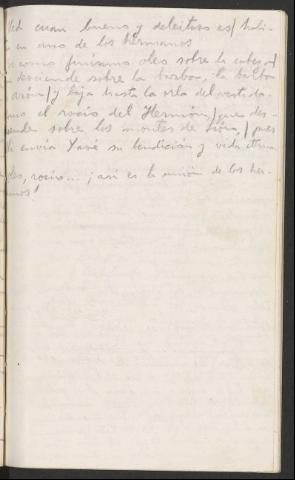 Ved cuan bueno y deleitoso es/ habi-
en uno de los hermanos
como finísimo oleo sobre la cabeza/
desciende sobre la barba, la barba
Aarón/ y baja hasta la orla del vestido.
como el rocío del Hermón,/ que des-
ciende sobre los montes de Sión,/ pues
envía Yavé su bendición y vida eterna
oleo, rocío...; así es la unión de los her-
manos!